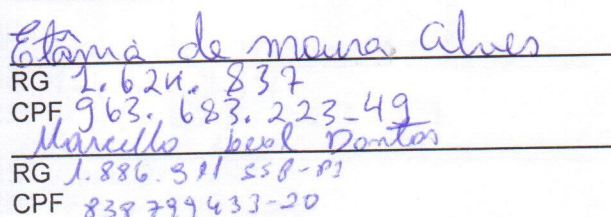 Etânia de moura Alves
RG 1.624.837
CPF 963.683.223-49
Marcello Leal Dantas
RG 1.886.911 SSP-PI
CPF 838799433-20